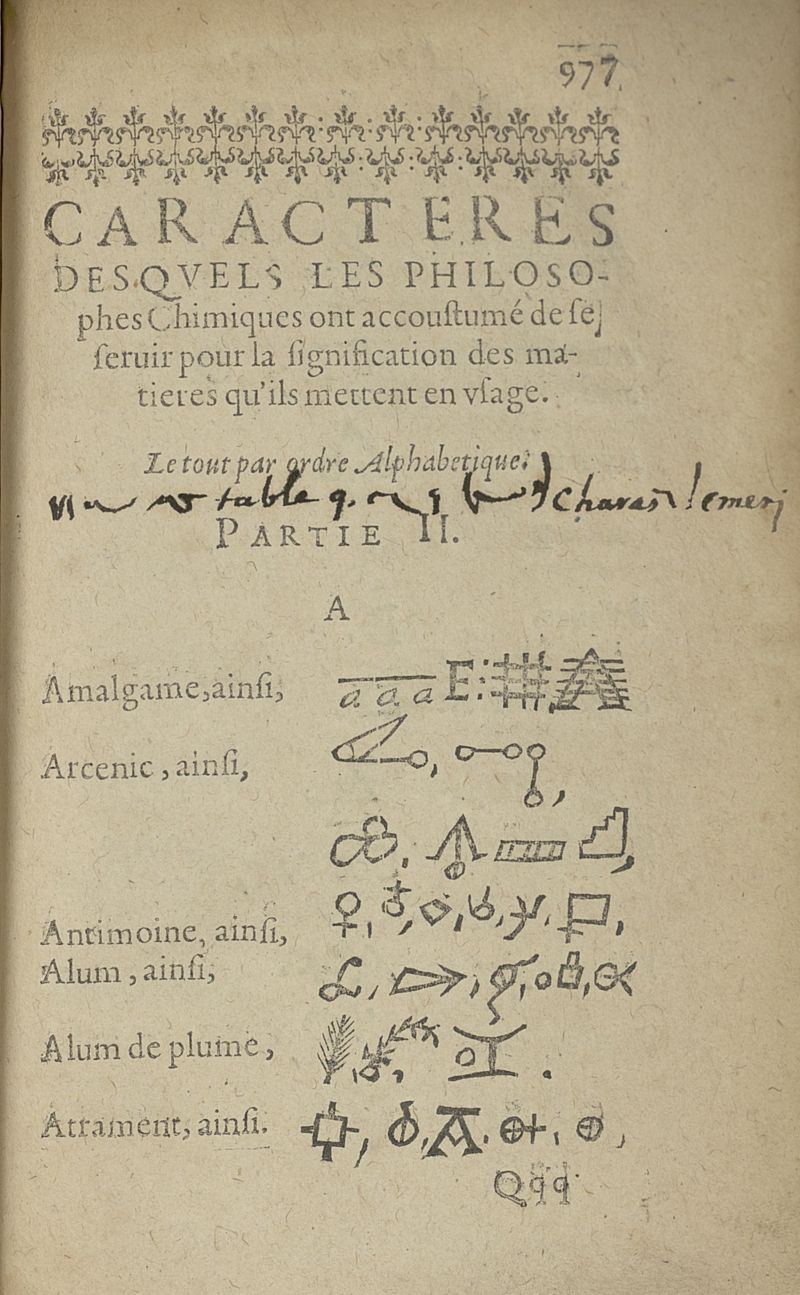 977.
CARACTERES
DESQVELS LES PHILOSO-
phes Chimiques ont accouſtumé de ſe
ſeruir pour la ſignification des ma-
tieres qu'ils mettent en vſage.
Le tout par ordre Alphabetique.
table Charas lemeri
PARTIE II.
A
Amalgame, ainſi, a a a E:
Arcenic, ainſi,
Antimoine, ainſi, ♀
Alum, ainſi,
Alum de plume,
Attrament, ainſi.
Qqq